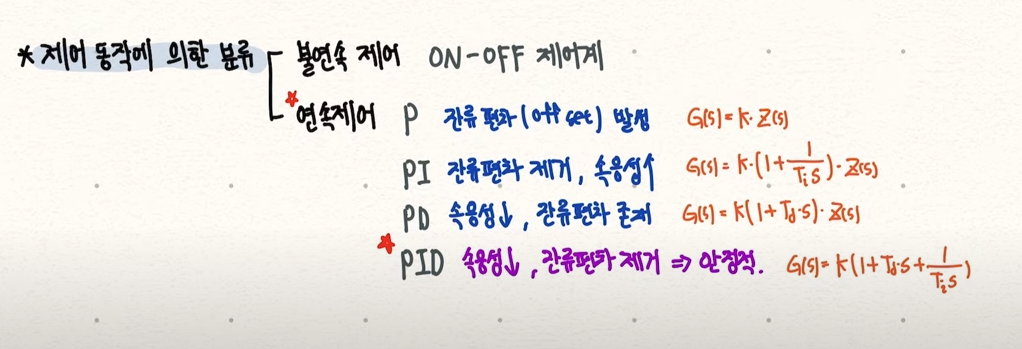 * 제어 동작에 의한 분류 불연속 제어 ON-OFF 제어계
연속제어 P 잔류편차(off set) 발생 G(s)=K·Z(s)
PI 잔류편차 제거, 속응성↑ G(s)=K·(1+1/Tᵢs)·Z(s)
PD 속응성↓, 잔류편차 존재 G(s)=K(1+Td·s)·Z(s)
PID 속응성↓, 잔류편차 제거 ⇒ 안정적. G(s)=K(1+Td·s+1/Tᵢs)